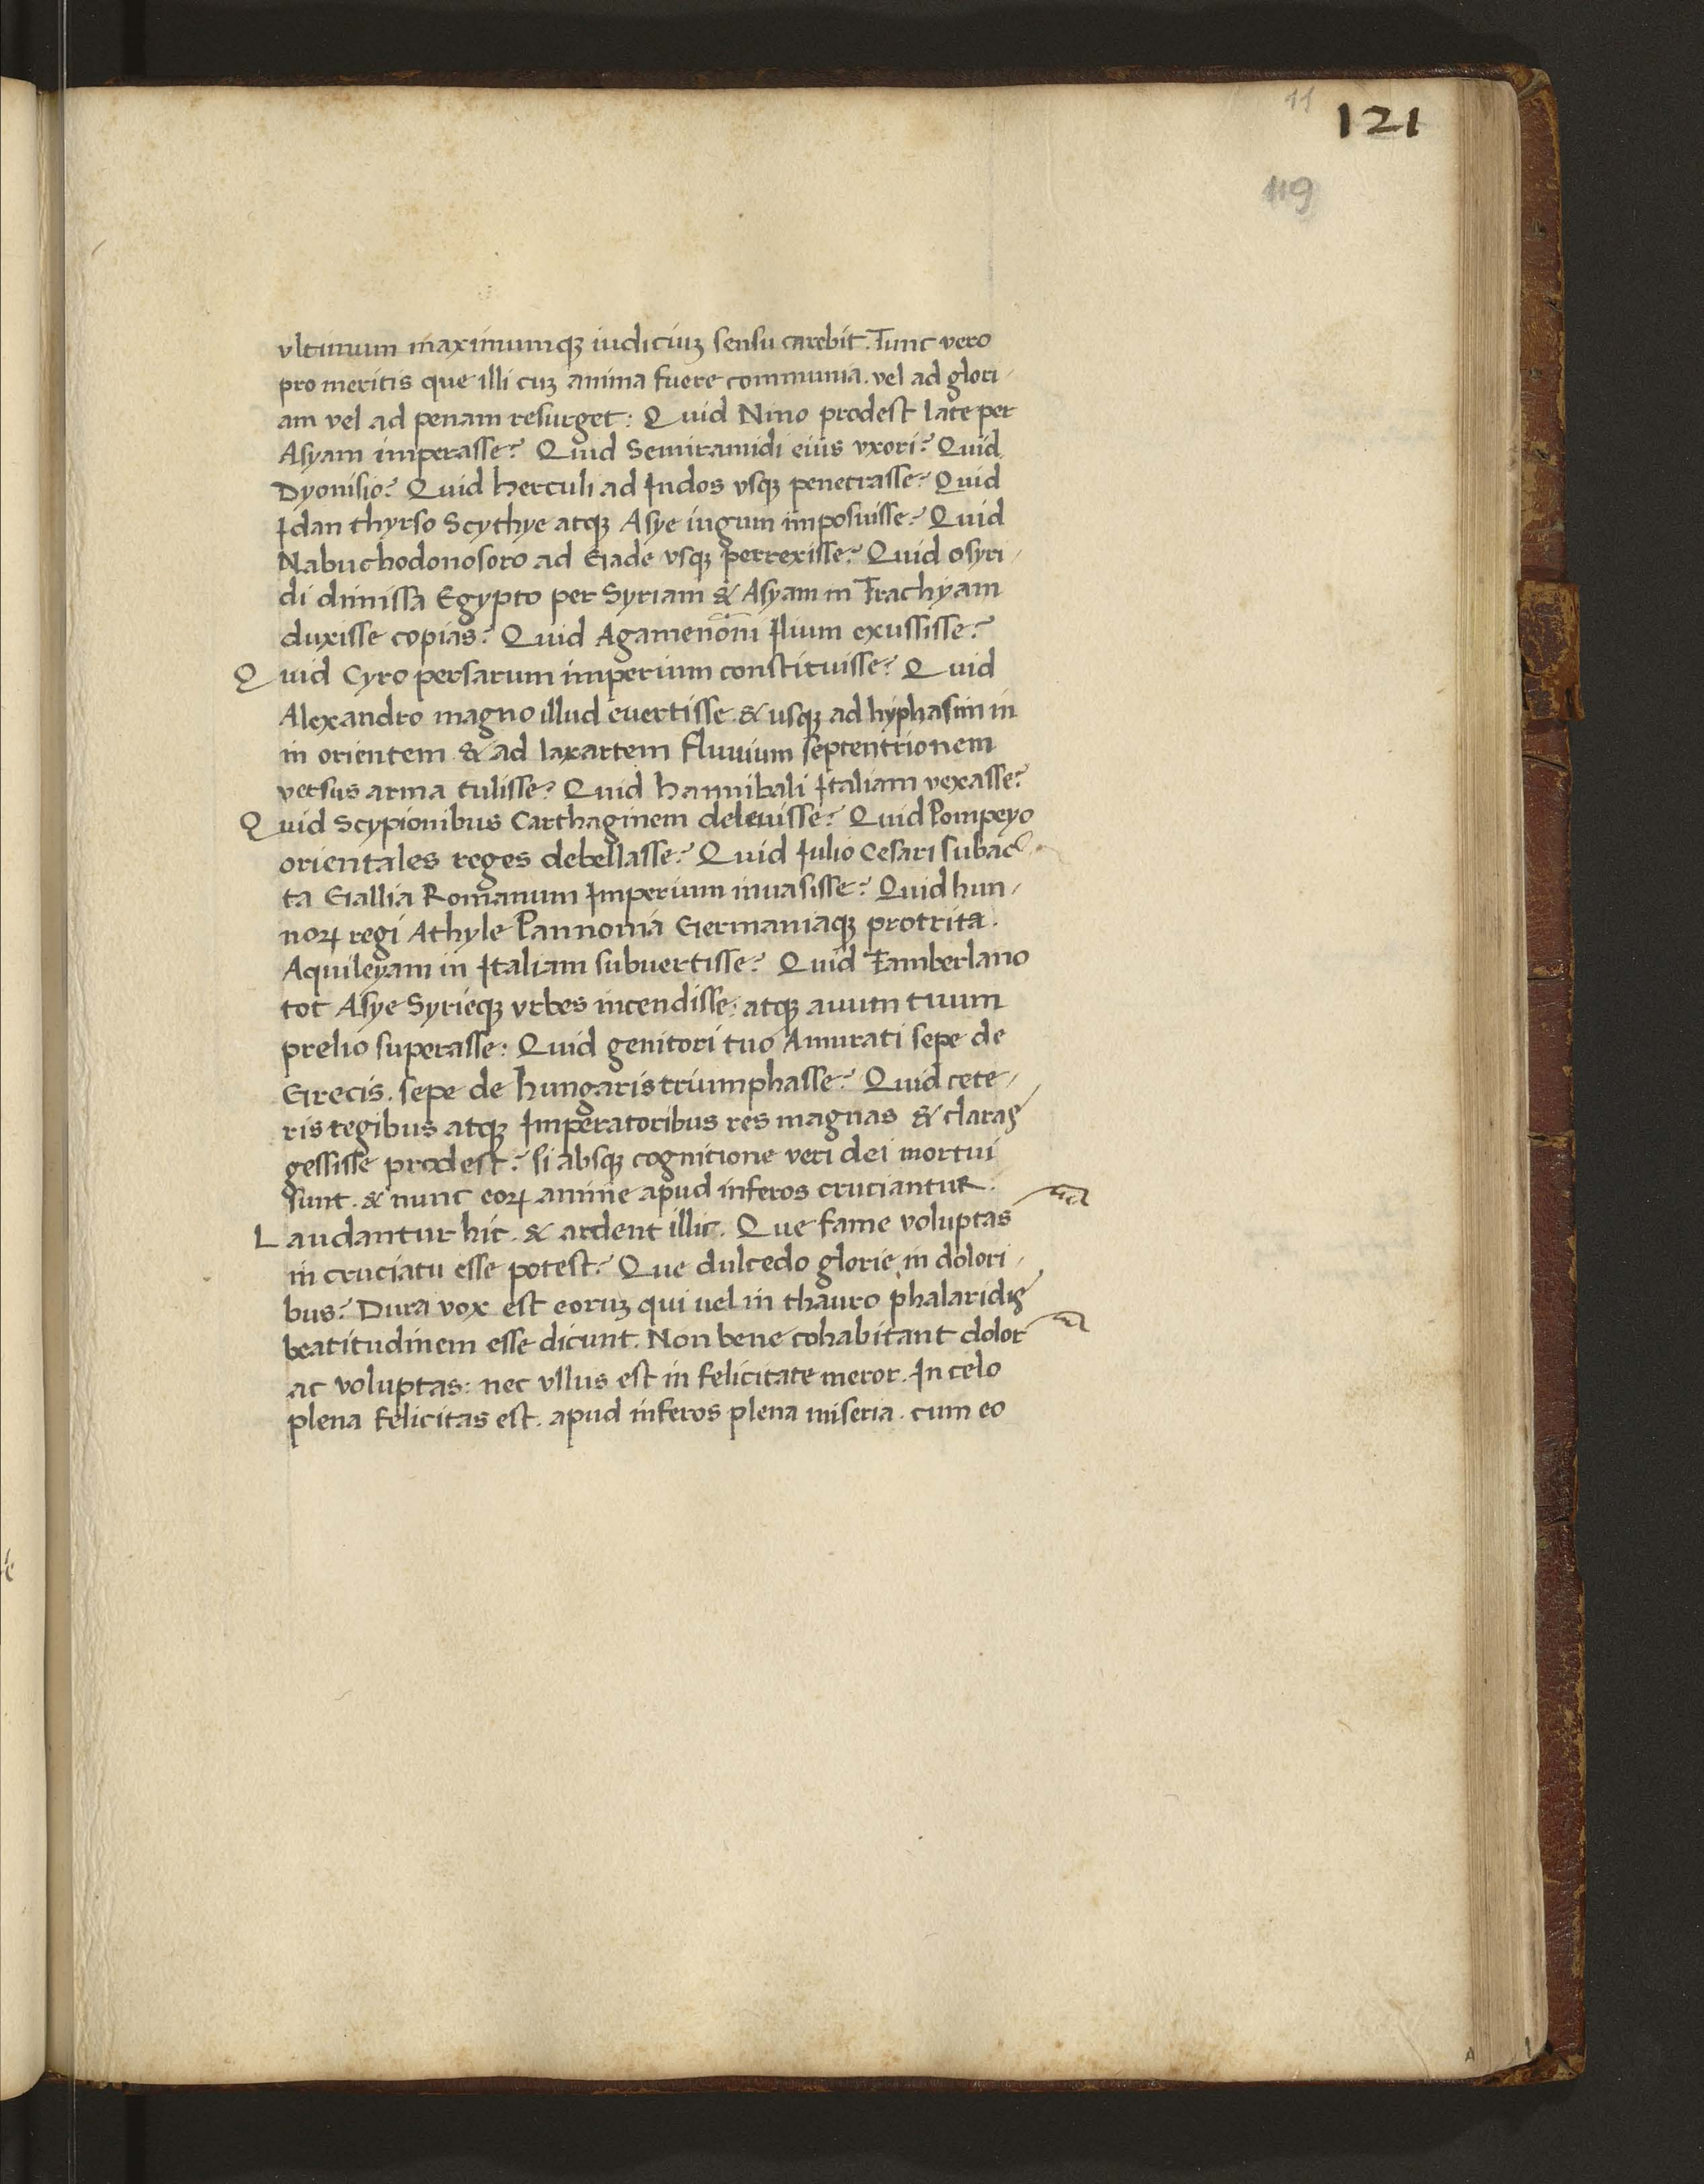 11
121
119
vltimum maximumqꝫ iudiciuꝫ sensu carebit. Tunc vero
pro meritis que illi cuꝫ anima fuere communia. vel ad glori-
am vel ad penam resurget: Quid Nino prodest late per
Asyam imperasse? Quid Semiramidi eius vxori? Quid
Dyonisio? Quid herculi ad Indos vsqꝫ penetrasse? Quid
Idan thyrso Scythye atqꝫ Asye iugum imposuisse? Quid
Nabuchodonosoro ad Gade vsqꝫ perrexisse? Quid osyri-
di dimissa Egypto per Syriam & Asyam in Trachyam
duxisse copias? Quid Agamenōni Ilium exussisse?
Quid Cyro persarum imperium constituisse? Quid
Alexandro magno illud euertisse & usqꝫ ad hyphasim in
in orientem & ad laxartem fluuium septentrionem
versus arma tulisse? Quid hannibali Italiam vexasse?
Quid Scypionibus Carthaginem deleuisse? Quid Pompeyo
orientales reges debellasse? Quid Iulio Cesari subac
ta Gallia Romanum Imperium inuasisse? Quid hun-
noꝝ regi Athyle Pannonia Germaniaqꝫ protrita.
Aquileyam in Italiam subuertisse? Quid Tamberlano
tot Asye Syrieqꝫ vrbes incendisse: atqꝫ auum tuum
prelio superasse: Quid genitori tuo Amurati sepe de
Grecis. sepe de hungaris triumphasse? Quid cete-
ris regibus atqꝫ Imperatoribus res magnas & claras
gessisse prodest? si absqꝫ cognitione veri dei mortui
sunt. & nunc eoꝝ anime apud inferos cruciantur.
Laudantur hic. & ardent illic. Que fame voluptas
in cruciatu esse potest? Que dulcedo glorie in dolori-
bus? Dura vox est eoruꝫ qui uel in thauro phalaridis
beatitudinem esse dicunt. Non bene cohabitant dolor
ac voluptas: nec vllus est in felicitate meror. In celo
plena felicitas est. apud inferos plena miseria. cum eo